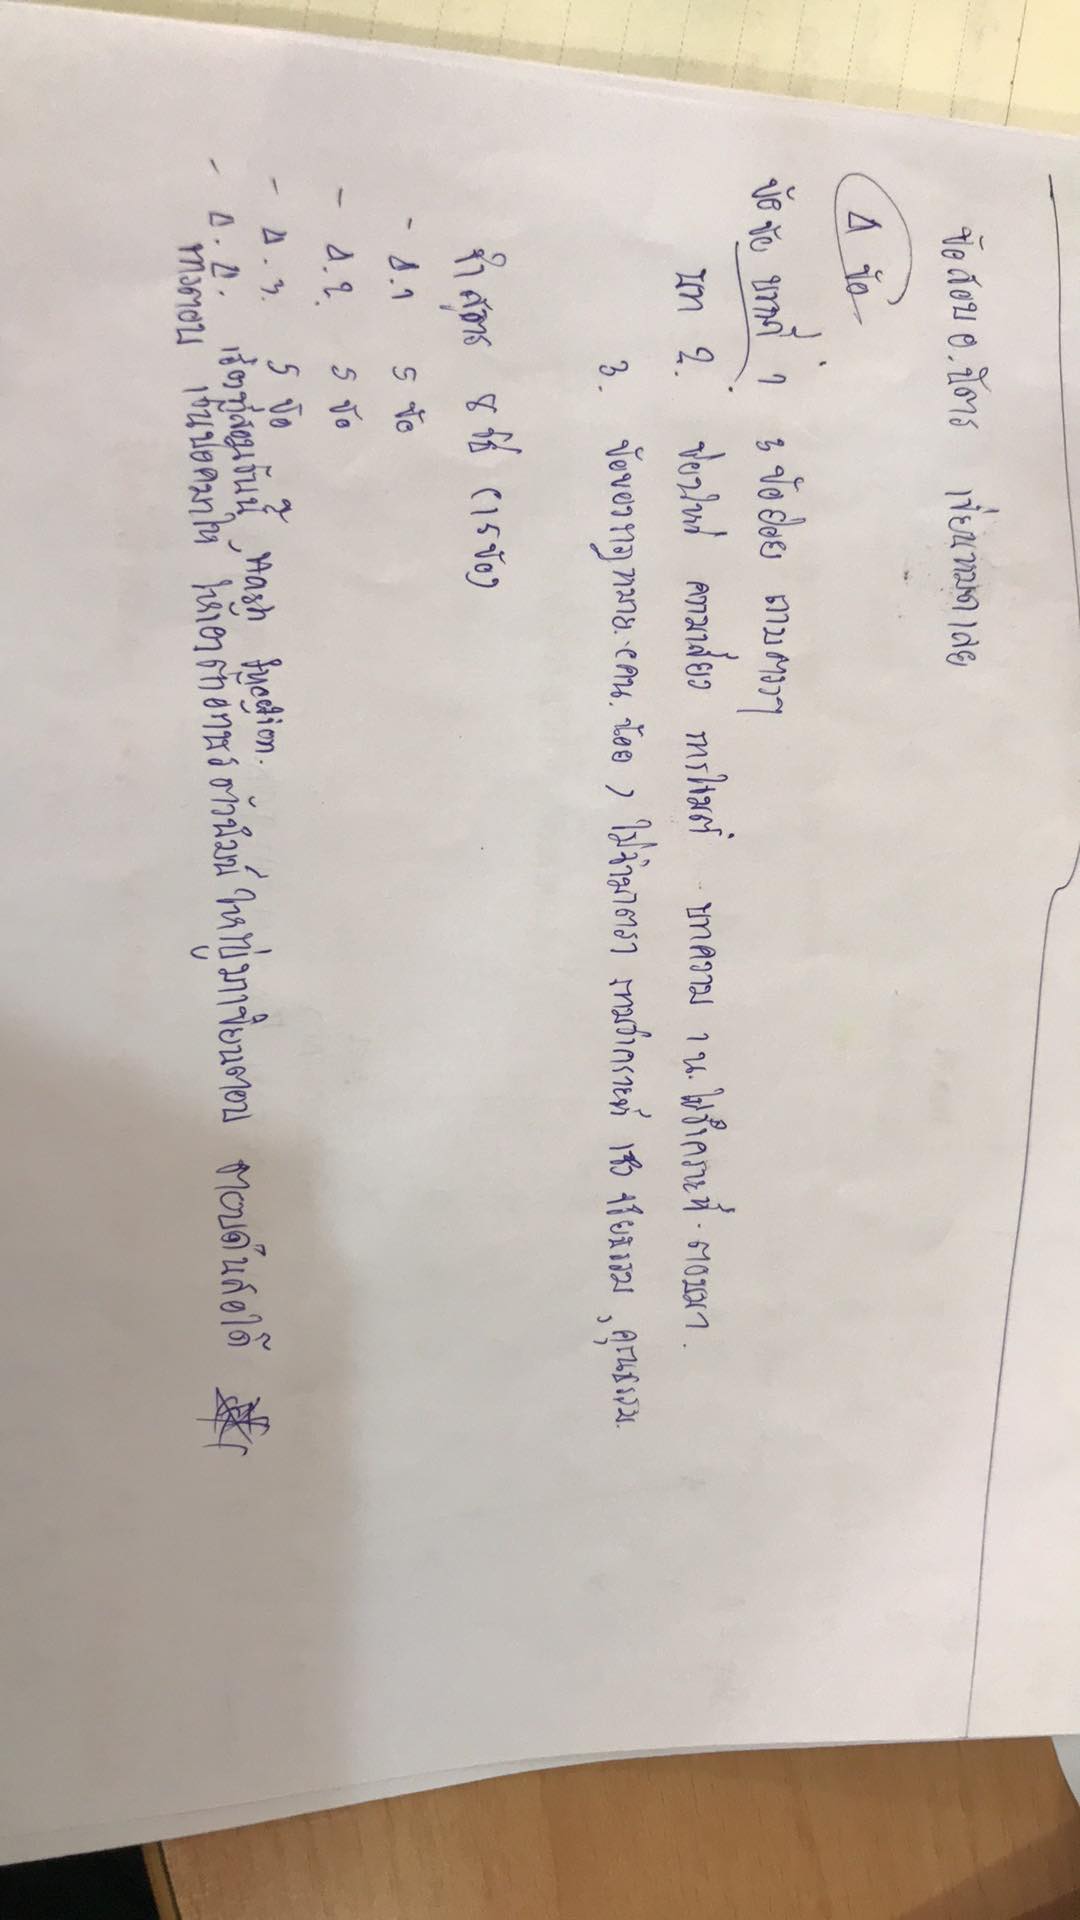 ข้อสอบ อ.ฉัตร เขียนหมดเลย
4 ข้อ
ข้อ บทที่ 1 3 ข้อย่อย ถามตรงๆ
บท 2. ความเสี่ยง การโจมตี บทความ 1 น. วิเคราะห์ ตอบมา.
3. ข้อของกฎหมาย. (คน. น้อย) ไม่จำมาตรา ถามวิเคราะห์ เชิง จริยธรรม, คุณธรรม.
จำ สูตร 8 วิธี (15 ข้อ)
- 4.1 5 ข้อ
- 4.2. 5 ข้อ
- 4.3. 5 ข้อ
- 4.4. เรื่องที่สอนวันนี้ Hash function.
การตอบ เว้นบ๊อคมาให้ ให้เอา ตัวอักษร ตัวพิมพ์ใหญ่มาเขียนตอบ ตอบดินสอได้